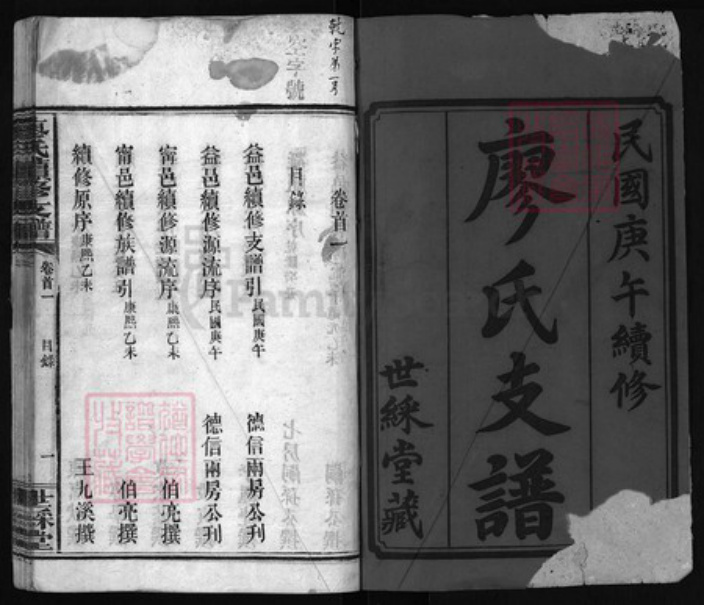 民國庚午續修
廖氏支譜
世綵堂藏
乾字第一号
卷首一
目錄
益邑續修支譜引 民國庚午 德信兩房公刋
益邑續修源流序 民國庚午 德信兩房公刋
甯邑續修源流序 康熙乙未 伯亮撰
甯邑續修族譜引 康熙乙未 伯亮撰
續修原序 康熙乙未 王九溪撰
廖氏續修支譜 卷首一 目錄 一 世綵堂